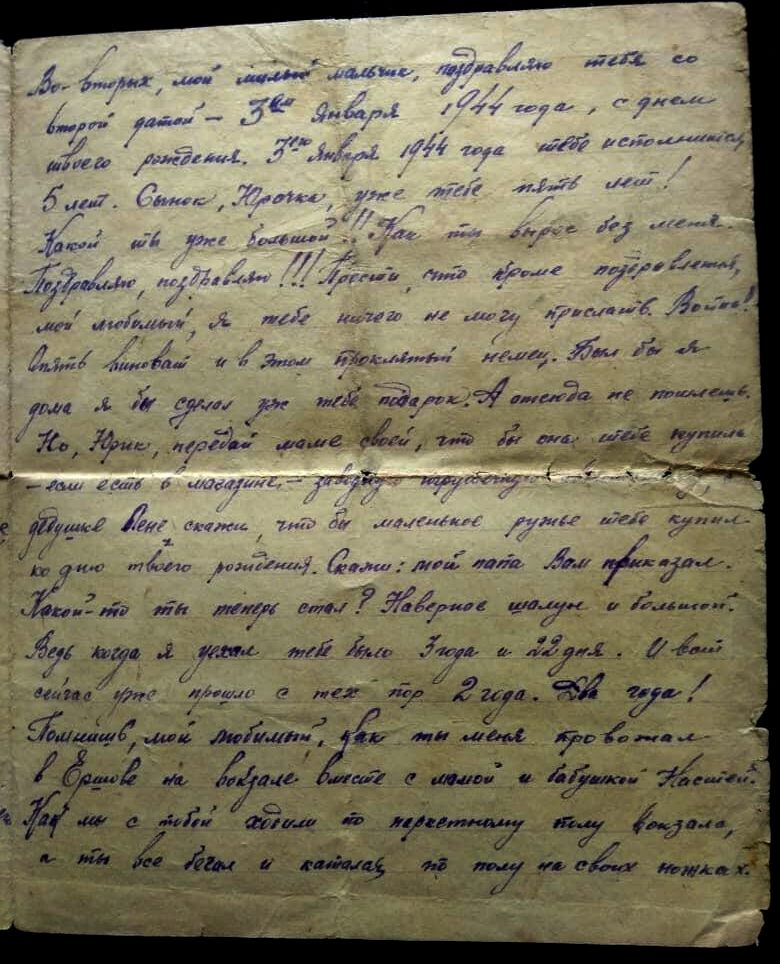 Во-вторых, мой милый мальчик, поздравляю тебя со
второй датой - 3ем января 1944 года, с днем
твоего рождения. 3его января 1944 года тебе исполнится
5 лет. Сынок, Юрочка, уже тебе пять лет!
Какой ты уже большой!! Как ты вырос без меня.
Поздравляю, поздравляю!!! Прости, что кроме
мой любимый, я тебе ничего не могу прислать. Война!
Опять виноват и в этом проклятый немец. Был бы я
дома я бы сделал уж тебе подарок. А отсюда не пошлешь.
Но, Юрик, передай маме своей, что бы она тебе купила
- если есть в магазине, - заводную игрушечную
дедушке Лене скажи, что бы маленькое ружье тебе купил
ко дню твоего рождения. Скажи: мой папа Вам приказал.
Какой-то ты теперь стал? Наверное шалун и большой.
Ведь когда я уехал тебе было 3 года и 22 дня. И вот
сейчас уже прошло с тех пор 2 года. Два года!
Помнишь, мой любимый, как ты меня провожал
в Ершове на вокзале вместе с мамой и бабушкой Настей.
Как мы с тобой ходили по паркетному полу вокзала,
а ты все бегал и катался по полу на своих ножках.